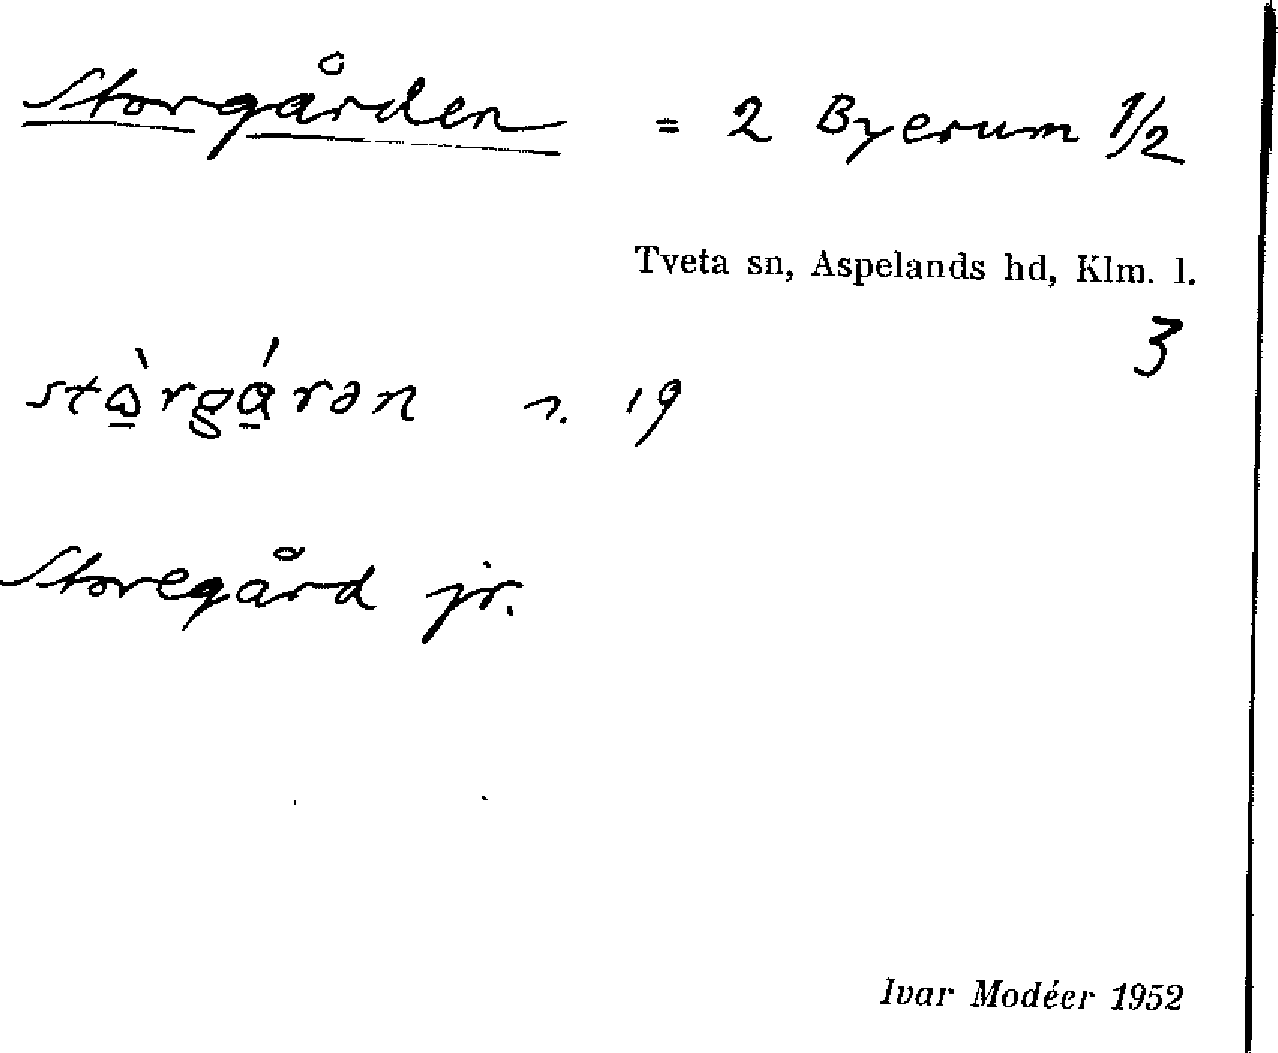 Storgården = 2 Byerum 1/2
Tveta sn, Aspelands hd, Klm. l.
3
stɷ̀rgɑ́rən n. 19
Storegård jr.
Ivar Modéer 1952